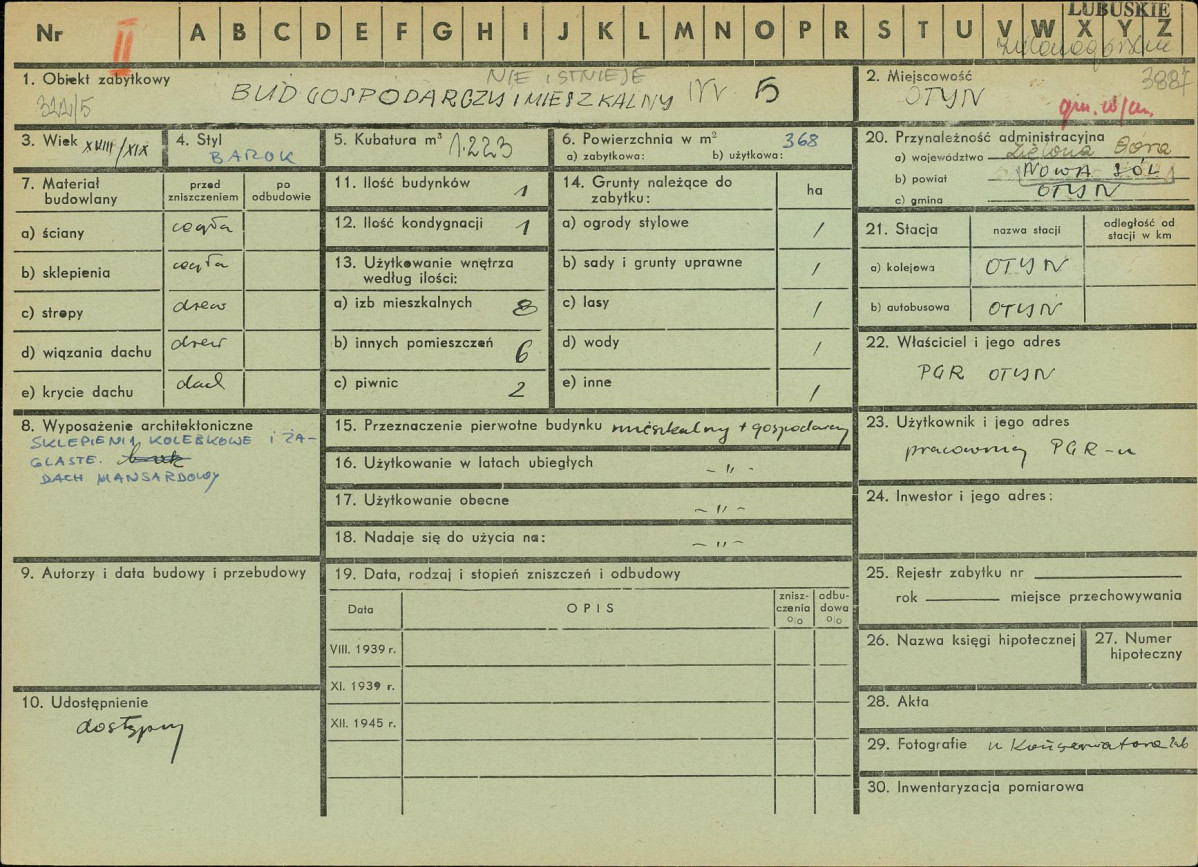 LUBUSKIE
Nr II A B C D E F G H I J K L M N O P R S T U V W X Y Z
1. Obiekt zabytkowy
NIE ISTNIEJE
BUD GOSPODARCZY I MIESZKALNY nr 5
322/5
2. Miejscowość
3887
OTYŃ
gm. w/m.
3. Wiek XVIII/XIX
4. Styl
BAROK
5. Kubatura m³ 1.223
6. Powierzchnia w m² 368
a) zabytkowa: b) użytkowa:
20. Przynależność administracyjna
a) województwo Zielona Góra
b) powiat NOWA SÓL
c) gmina OTYŃ
7. Materiał budowlany
przed zniszczeniem
po odbudowie
a) ściany cegła
b) sklepienia cegła
c) stropy drew
d) wiązania dachu drew
e) krycie dachu dach
11. Ilość budynków 1
12. Ilość kondygnacji 1
13. Użytkowanie wnętrza
według ilości:
a) izb mieszkalnych 8
b) innych pomieszczeń 6
c) piwnic 2
14. Grunty należące do
zabytku:
ha
a) ogrody stylowe /
b) sady i grunty uprawne /
c) lasy /
d) wody /
e) inne /
21. Stacja
nazwa stacji
odległość od
stacji w km
a) kolejowa OTYŃ
b) autobusowa OTYŃ
22. Właściciel i jego adres
PGR OTYŃ
8. Wyposażenie architektoniczne
SKLEPIENIA KOLEBKOWE I ŻA-
GLASTE.
DACH MANSARDOWY
15. Przeznaczenie pierwotne budynku mieszkalny + gospodarczy
16. Użytkowanie w latach ubiegłych -"-
17. Użytkowanie obecne -"-
18. Nadaje się do użycia na: -"-
23. Użytkownik i jego adres
pracownicy PGR-u
24. Inwestor i jego adres:
9. Autorzy i data budowy i przebudowy
19. Data, rodzaj i stopień zniszczeń i odbudowy
Data
OPIS
znisz-
czenia
%
odbu-
dowa
%
VIII. 1939 r.
XI. 1939 r.
XII. 1945 r.
25. Rejestr zabytku nr
rok miejsce przechowywania
26. Nazwa księgi hipotecznej
27. Numer
hipoteczny
10. Udostępnienie
dostępny
28. Akta
29. Fotografie u Konserwatora
30. Inwentaryzacja pomiarowa